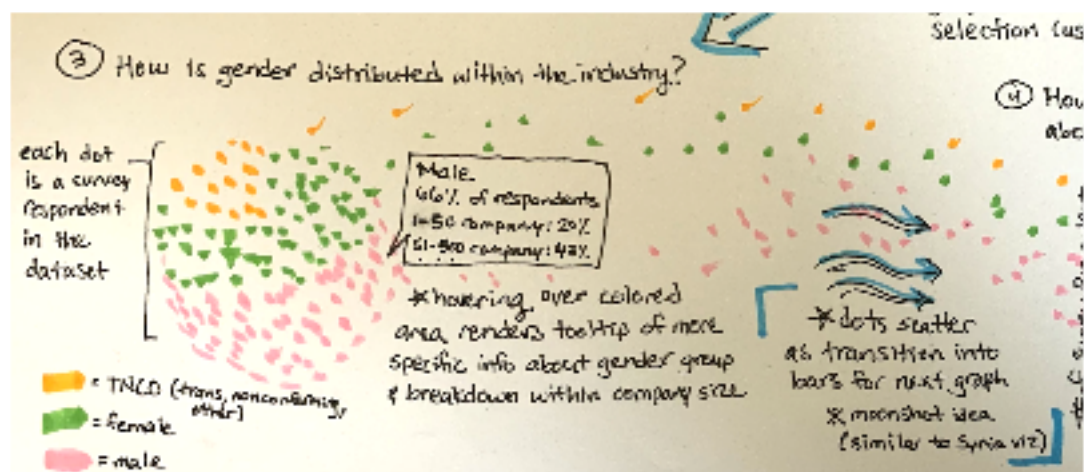 selection (us
③ How is gender distributed within the industry?
④ How
abo
each dot
is a survey
respondent
in the
dataset
Male
66% of respondents
1-50 company: 20%
51-500 company: 42%
* hovering over colored
area renders tooltip of more
specific info about gender group
& breakdown within company size
* dots scatter
as transition into
bars for next graph
* moonshot idea
(similar to Syria viz)
= TNCO (trans, nonconforming,
other)
= female
= male